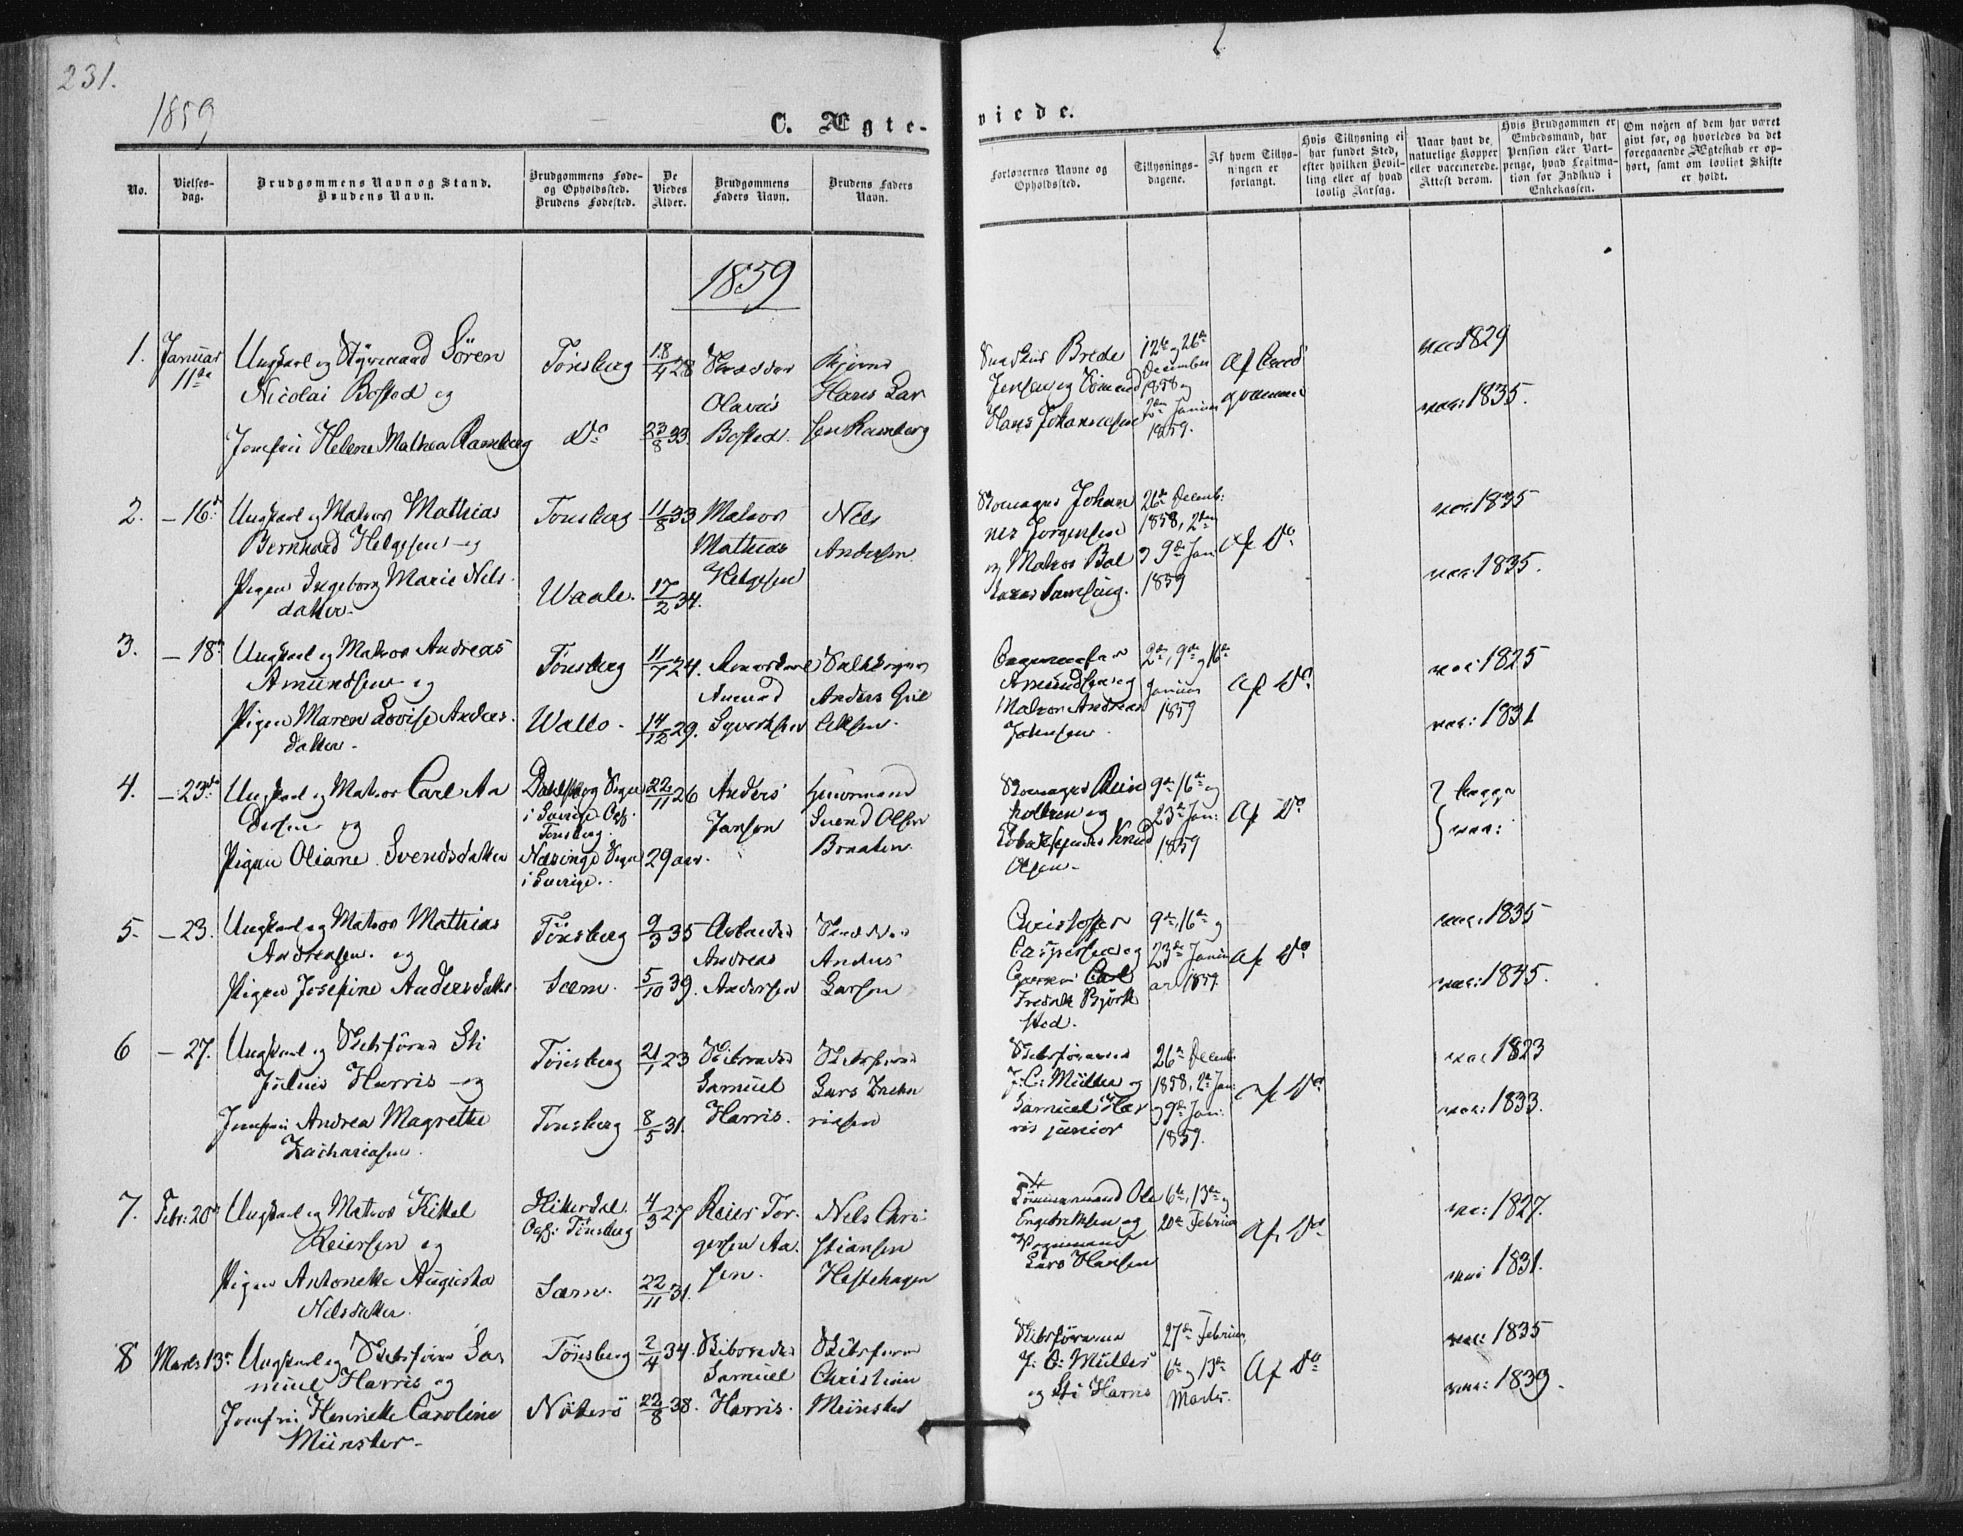 231.
1859
C. Ægte-
viede.
No.
Vielses-
dag.
Brudgommens Navn og Stand.
Brudens Navn.
Brudgommens Føde-
og Opholdssted.
Brudens Fødested.
De
Viedes
Alder.
Brudgommens
Faders Navn.
Brudens Faders
Navn.
Forlovernes Navne og
Opholdssted.
Tillysnings-
dagene.
Af hvem Tillys-
ningen er
forlangt.
Hvis Tillysning ei
har fundet Sted,
efter hvilken Bevil-
ling eller af hvad
lovlig Aarsag.
Naar havt de
naturlige Kopper
eller vaccinerede.
Attest derom.
Hvis Brudgommen er
Embedsmand, har
Pension eller Vart-
penge, hvad Legitima-
tion for Indskud i
Enkekassen.
Om nogen af dem har været
givt for, og hvorledes da det
foregaaende Ægteskab er op-
hørt, samt om lovligt Skifte
er holdt.
1859
1. Januar 11te
Ungkarl og Styrmand Sören
Nicolai Bosted og
Jomfru Helene Mathea Ramberg
Tönsberg
Do
18/4 28
23/8 33
Olavus
Bosted.
Hans Lar
sen Ramberg
Brede
Jensen og
Hans Johannesen
12te og 26de
December
1858 og
2den Januar
1859.
Af Brud
gommen
vac: 1829
vac: 1835.
2. – 16de
Ungkarl og Matros Mathias
Bernhard Helgesen og
Pigen Ingeborg Marie Nils
datter
Tönsberg
Waale.
11/8 33
17/2 34.
Matros
Mathias
Helgesen
Nils
Andersen.
Johan
nes Jörgensen
og Matros
26de Decemb:
1858, 2den
9de Jan:
1859
Af Do
vac: 1835
vac: 1835.
3. – 18de
Ungkarl og Matros Andreas
Amundsen og
Pigen Maren Lovise Anders
datter
Tönsberg
Wallö
11/7 24.
14/12 29.
Amund
Syvertsen
Anders
Amundsen og
Matros Andreas
Johnsen
2den, 9de og 16de
Januar
1859
Af Do
vac: 1825
vac: 1831
4. – 23de
Ungkarl og Matros Carl An
dersen og
Pigen Oliane Svendsdatter
Sogn
i Sverige Oph:
Tönsberg.
Næsinge Sogn
i Sverige.
22/11 26
29 aar.
Anders
Janson
Svend Olsen
Braaten.
og
Knud
Olsen
9de, 16de og
23de Jan:
1859
Af Do
begge
vac:
5. – 23.
Ungkarl og Matros Mathias
Andreasen og
Pigen Josefine Andersdatter
Tönsberg
Sæm.
9/3 35
5/10 39.
Arbeider
Andreas
Andersen
Anders
Larsen
Christoffer
Caspersen og
Carl
Fredrik Björk
sted.
9de, 16de og
23de Janu
ar 1859.
Af Do
vac: 1835
vac: 1845.
6 – 27.
Ungkarl og Skibsförer Sti
Julius Harris og
Jomfru Andrea Magrethe
Zachariasen.
Tönsberg
Tönsberg
21/1 23
8/5 31.
Skibsreder
Samuel
Harris.
Skibsförer
Lars Zacha
riasen
Skibsförerne
J: C: Müller og
Samuel Har
ris junior
26de Decemb:
1858, 2den Jan:
og 9de Jan:
1859.
Af Do
vac 1823
vac: 1833.
7. Febr: 20de
Ungkarl og Matros Kittel
Reiersen og
Pigen Antonette Augusta
Nilsdatter.
Hitterdal.
Oph: Tönsberg
Sæm.
4/3 27
22/11 31.
Reier Tor
gersen Aa
sen.
Nels Chri
stiansen
Hestehagen
Tömmermand Ole
Engebretsen og
Lars Hansen
6te, 13de og
20de Februar
Af Do
vac: 1827.
vac 1831.
8 Marts 13de
Ungkarl og Skibsförer Sa
muel Harris og
Jomfru Henriette Caroline
Münster
Tönsberg
Nöterö
2/4 34.
22/8 38.
Skibsreder
Samuel
Harris.
Skibsförer
Christian
Münster
Skibsförerne
J: C: Müller
og Sti Harris
27de Februar,
6te og 13de
Marts.
Af Do
vac: 1835
vac: 1839.